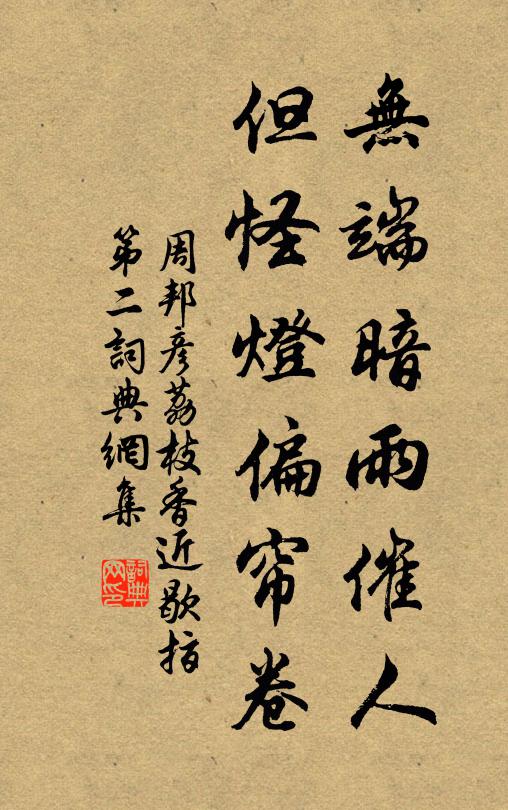 無端暗雨催人
但怪燈偏帘卷
周邦彥荔枝香近歇指
第二詞典網集
詞典網印